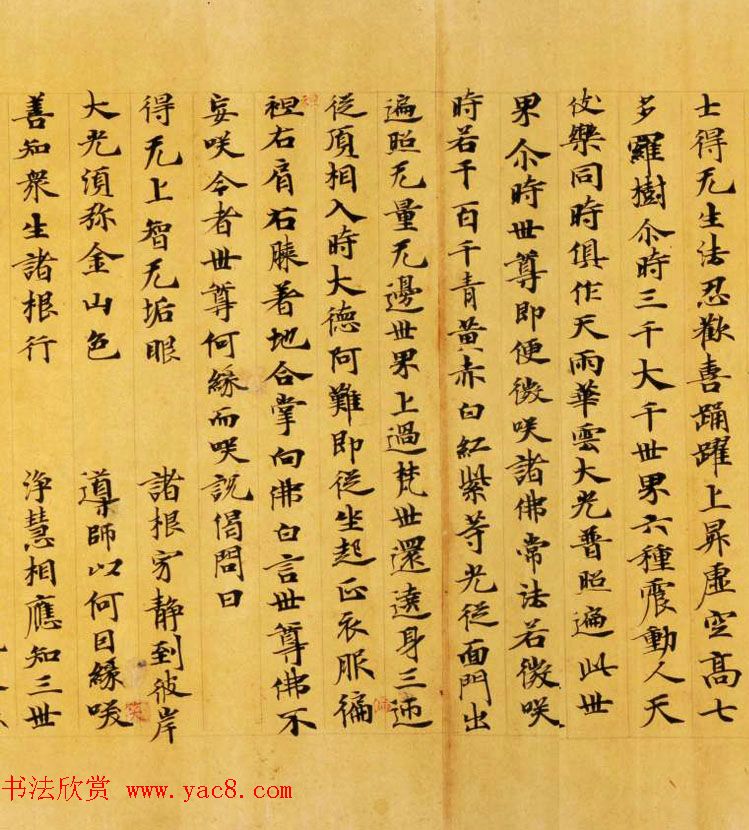 士得无生法忍歡喜踊躍上昇虛空高七
多羅樹尒時三千大千世界六種震動人天
伎樂同時俱作天雨華雲大光普照遍此世
果尒時世尊即便微咲諸佛常法若微咲
時若千百千青黃赤白紅紫等光從面門出
遍照无量无邊世界上過梵世還遶身三迊
從頂相入時大德阿難即從坐起正衣服徧
袒右肩右膝著地合掌向佛白言世尊佛不
妄咲今者世尊何緣而咲說偈問曰
得无上智无垢眼 諸根穷静到彼岸
大光須弥金山色 導師以何因緣咲
善知衆生諸根行 淨慧相應知三世
书法欣赏 www.yac8.com